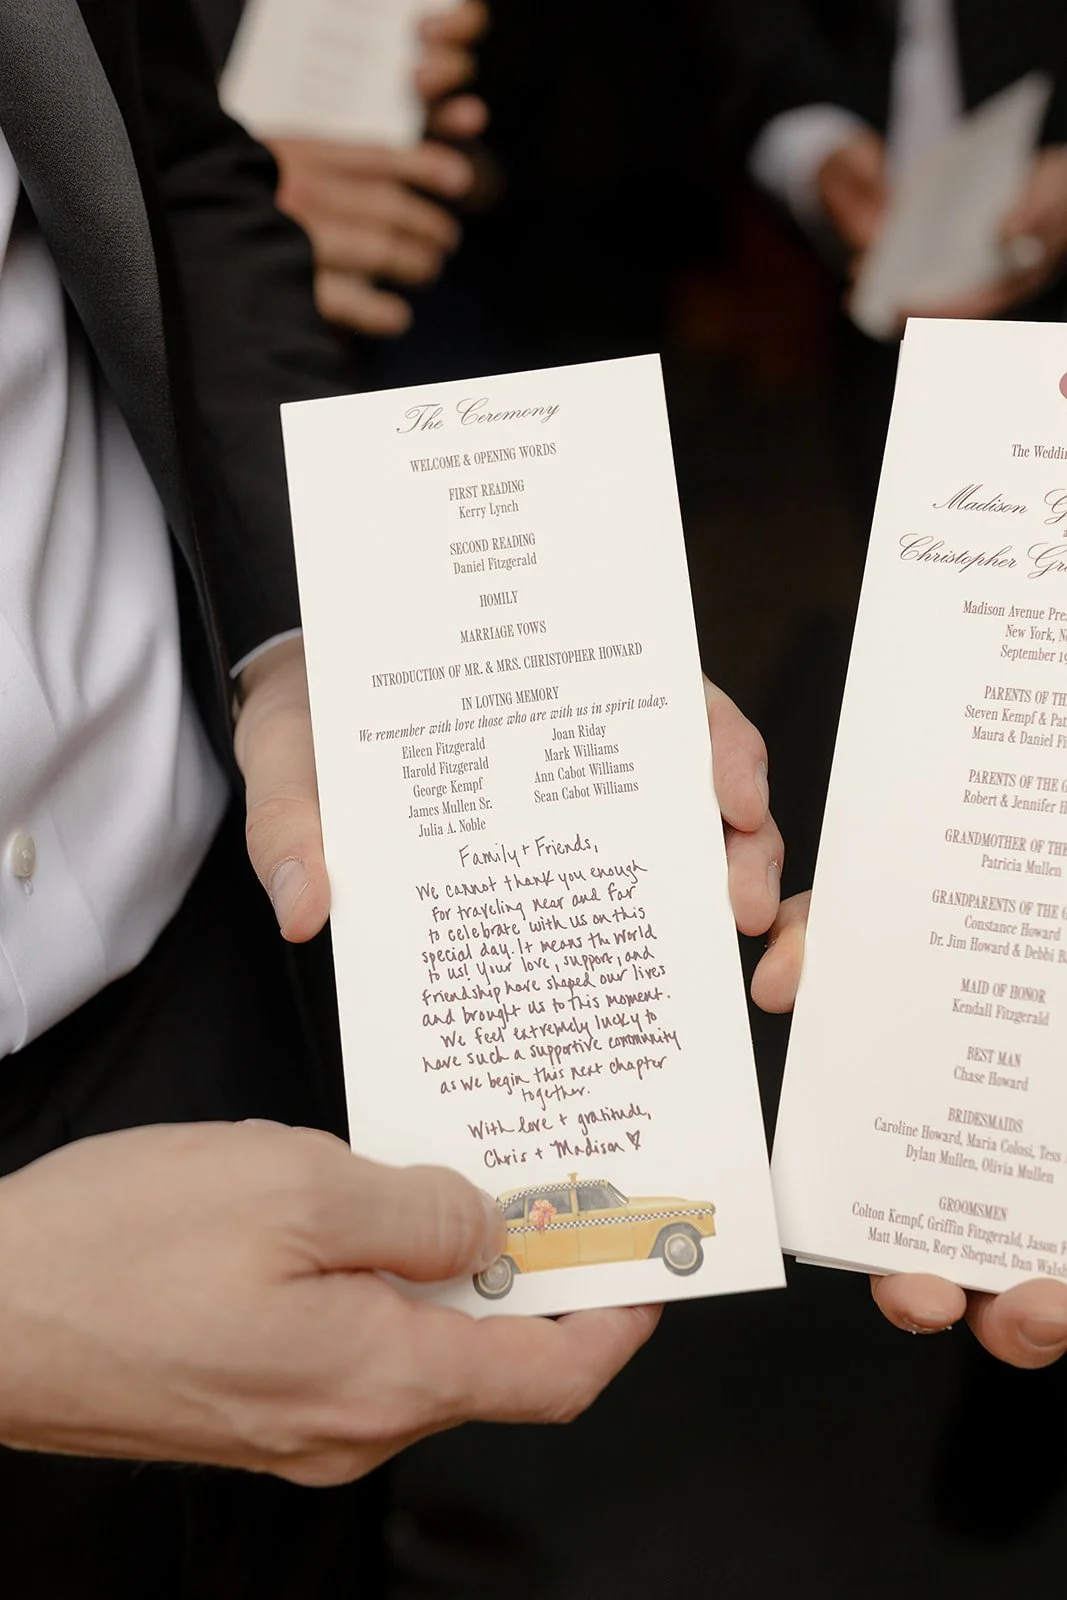 The Ceremony
WELCOME & OPENING WORDS
FIRST READING
Kerry Lynch
SECOND READING
Daniel Fitzgerald
HOMILY
MARRIAGE VOWS
INTRODUCTION OF MR. & MRS. CHRISTOPHER HOWARD
IN LOVING MEMORY
We remember with love those who are with us in spirit today.
Eileen Fitzgerald
Harold Fitzgerald
George Kempf
James Mullen Sr.
Julia A. Noble
Joan Riday
Mark Williams
Ann Cabot Williams
Sean Cabot Williams
Family + Friends,
We cannot thank you enough
for traveling near and far
to celebrate with us on this
special day. It means the world
to us! Your love, support, and
friendship have shaped our lives
and brought us to this moment.
We feel extremely lucky to
have such a supportive community
as we begin this next chapter
together.
With love + gratitude,
Chris + Madison ♡
The
Madison
Christopher
Madison Avenue
New York,
September
PARENTS OF
Steven Kempf &
Maura & Daniel
PARENTS OF THE
Robert & Jennifer
GRANDMOTHER OF THE
Patricia Mullen
GRANDPARENTS OF THE
Constance Howard
Dr. Jim Howard & Debbi
MAID OF HONOR
Kendall Fitzgerald
BEST MAN
Chase Howard
BRIDESMAIDS
Caroline Howard, Maria Colosi, Tess
Dylan Mullen, Olivia Mullen
GROOMSMEN
Colton Kempf, Griffin Fitzgerald, Jason
Matt Moran, Rory Shepard, Dan